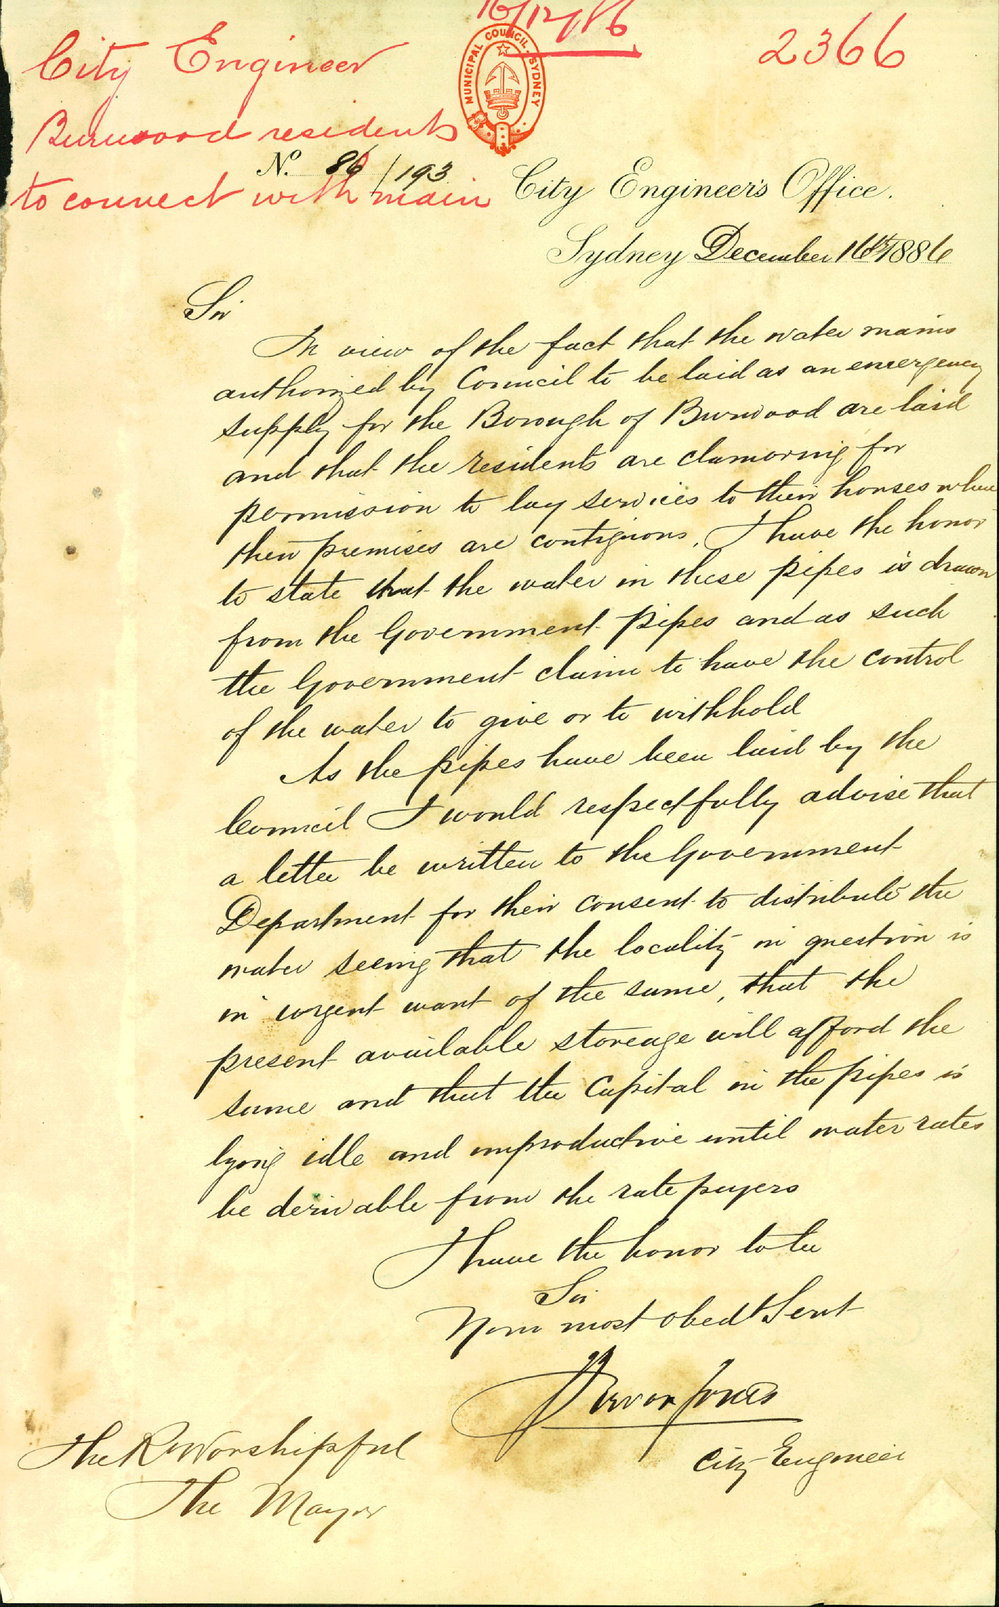 16/12/86
2366
City Engineer
Burwood residents
to connect with main
MUNICIPAL COUNCIL SYDNEY
No. 86/193
City Engineer's Office.
Sydney December 16th 1886
Sir
In view of the fact that the water mains
authorized by Council to be laid as an emergency
supply for the Borough of Burwood are laid
and that the residents are clamoring for
permission to lay services to their houses when
their premises are contiguous, I have the honor
to state that the water in these pipes is drawn
from the Government pipes and as such
the Government claim to have the control
of the water to give or to withhold
As the pipes have been laid by the
Council I would respectfully advise that
a letter be written to the Government
Department for their consent to distribute the
water seeing that the locality in question is
in urgent want of the same, that the
present available storeage will afford the
same and that the Capital in the pipes is
lying idle and unproductive until water rates
be derivable from the rate payers
I have the honor to be
Sir
Your most obedt Servt
Trevor Jones
City Engineer
The Rt Worshipful
The Mayor